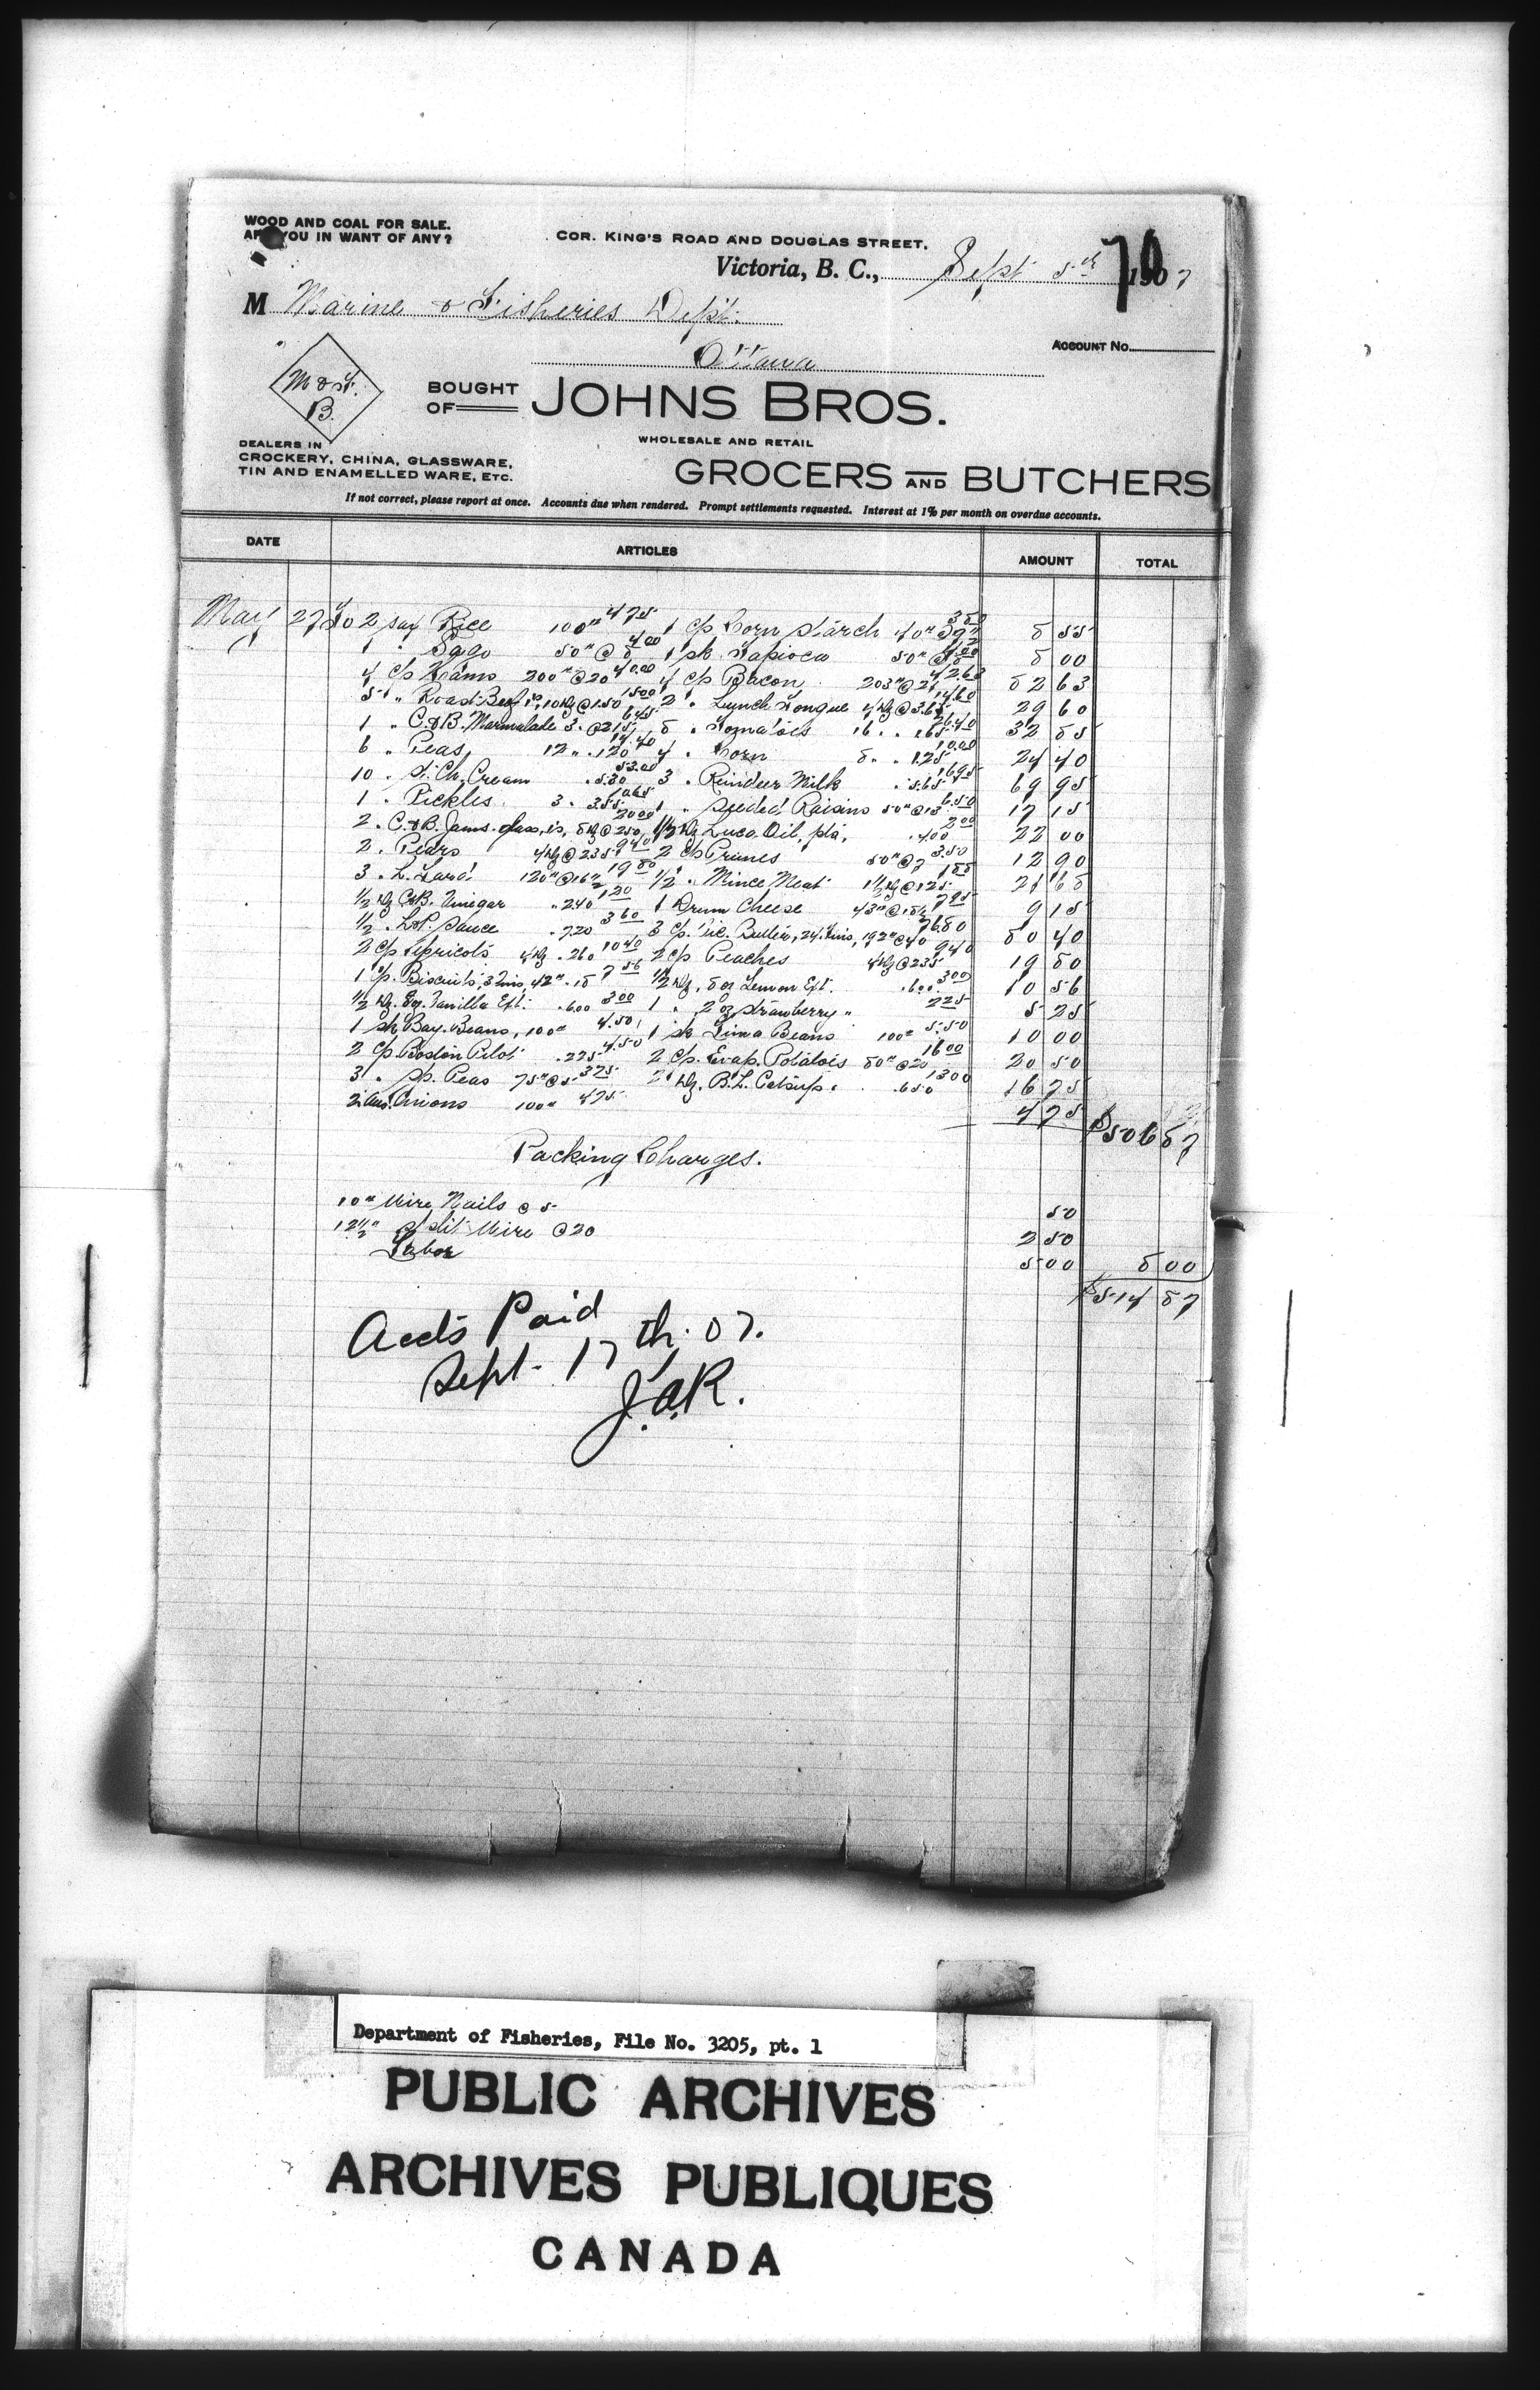 WOOD AND COAL FOR SALE.
ARE YOU IN WANT OF ANY?
COR. KING'S ROAD AND DOUGLAS STREET.
70
Victoria, B. C., Sept 5th 1907
M Marine & Fisheries Dept.
Ottawa
ACCOUNT No.
M & F.
B.
BOUGHT OF JOHNS BROS.
WHOLESALE AND RETAIL
GROCERS AND BUTCHERS
DEALERS IN
CROCKERY, CHINA, GLASSWARE,
TIN AND ENAMELLED WARE, ETC.
If not correct, please report at once. Accounts due when rendered. Prompt settlements requested. Interest at 1% per month on overdue accounts.
DATE ARTICLES AMOUNT TOTAL
May 27 To 2 Rice 100" 475 1 c/s Corn Starch 40" 380 8 55
1 " Sago 50" @ 8 4.00 1 sk Tapioca 50" @ 8 4.00 8 00
4 c/s Hams 200" @ 20 40.00 4 c/s Bacon 203" @ 21 42.63 82 63
5 " Roast Beef 1s, 10 dz @ 1.50 15.00 2 " Lunch Tongue 4 dz @ 3.65 14.60 29 60
1 " C&B. Marmalade 3 " @ 215 645 8 " Tomatoes 16 " " 165 26.40 32 85
6 " Peas 12 " " 120 14.40 4 " Corn 8 " " 1.25 10.00 24 40
10 " St. Ch. Cream " 5.30 53.00 3 " Reindeer Milk " 5.65 16.95 69 95
1 " Pickles 3 " 3.55 10.65 1 " Seeded Raisins 50" @ 13 6.50 17 15
2 " C&B. Jams. glass, 1s, 8 dz @ 250 20.00 1/2 dz Luca Oil, pts, " 400 2.00 22 00
2 " Pears 4 dz @ 235 940 2 c/s Prunes 50" @ 7 3.50 12 90
3 " L. Lard 120" @ 16 1/2 19 80 1/2 " Mince Meat 1 1/2 dz @ 125 188 21 68
1/2 dz C&B. Vinegar " 240 1.20 1 Drum Cheese 43" @ 18 1/2 795 9 15
1/2 " L&P. Sauce " 720 3 60 3 c/s Vic. Butter, 24 tins, 192" @ 40 76.80 80 40
2 c/s Apricots 4 dz " 260 10 40 2 c/s Peaches 4 dz @ 235 940 19 80
1 c/s Biscuits, 3 tins, 42" " 18 7 56 1/2 dz, 8 oz Lemon Ext. " 600 3.00 10 56
1/2 dz. 8 oz. Vanilla Ext. " 600 3.00 1 " 2 oz Strawberry " 225 5 25
1 sk Bay. Beans, 100" 4.50 1 sk Lima Beans 100" 5.50 10 00
2 c/s Boston Pilot " 225 4.50 2 c/s. Evap. Potatoes 80" @ 20 16.00 20 50
3 " Sp. Peas 75" @ 5 375 2 dz. B.L. Catsup " 650 1300 16 75
2 Aus. Onions 100" 475 4 75 $506 87
Packing Charges.
10" Wire Nails @ 5 50
12 1/2" Split Wire @ 20 2 50
Labor 5 00 8 00
$514 87
Accts Paid
Sept. 17th. 07.
J.A.R.
Department of Fisheries, File No. 3205, pt. 1
PUBLIC ARCHIVES
ARCHIVES PUBLIQUES
CANADA